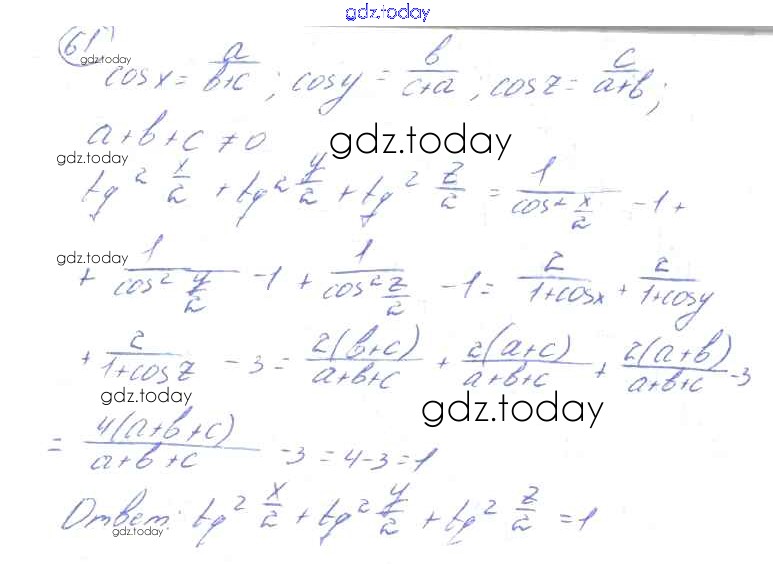 gdz.today
61)
gdz.today
cos x = a/(b+c) ; cos y = b/(c+a) ; cos z = c/(a+b) ;
a + b + c ≠ 0 gdz.today
gdz.today
tg² x/2 + tg² y/2 + tg² z/2 = 1/(cos² x/2) - 1 +
gdz.today
+ 1/(cos² y/2) - 1 + 1/(cos² z/2) - 1 = 2/(1+cos x) + 2/(1+cos y)
+ 2/(1+cos z) - 3 = 2(b+c)/(a+b+c) + 2(a+c)/(a+b+c) + 2(a+b)/(a+b+c) - 3
gdz.today gdz.today
= 4(a+b+c)/(a+b+c) - 3 = 4 - 3 = 1
Ответ: tg² x/2 + tg² y/2 + tg² z/2 = 1
gdz.today